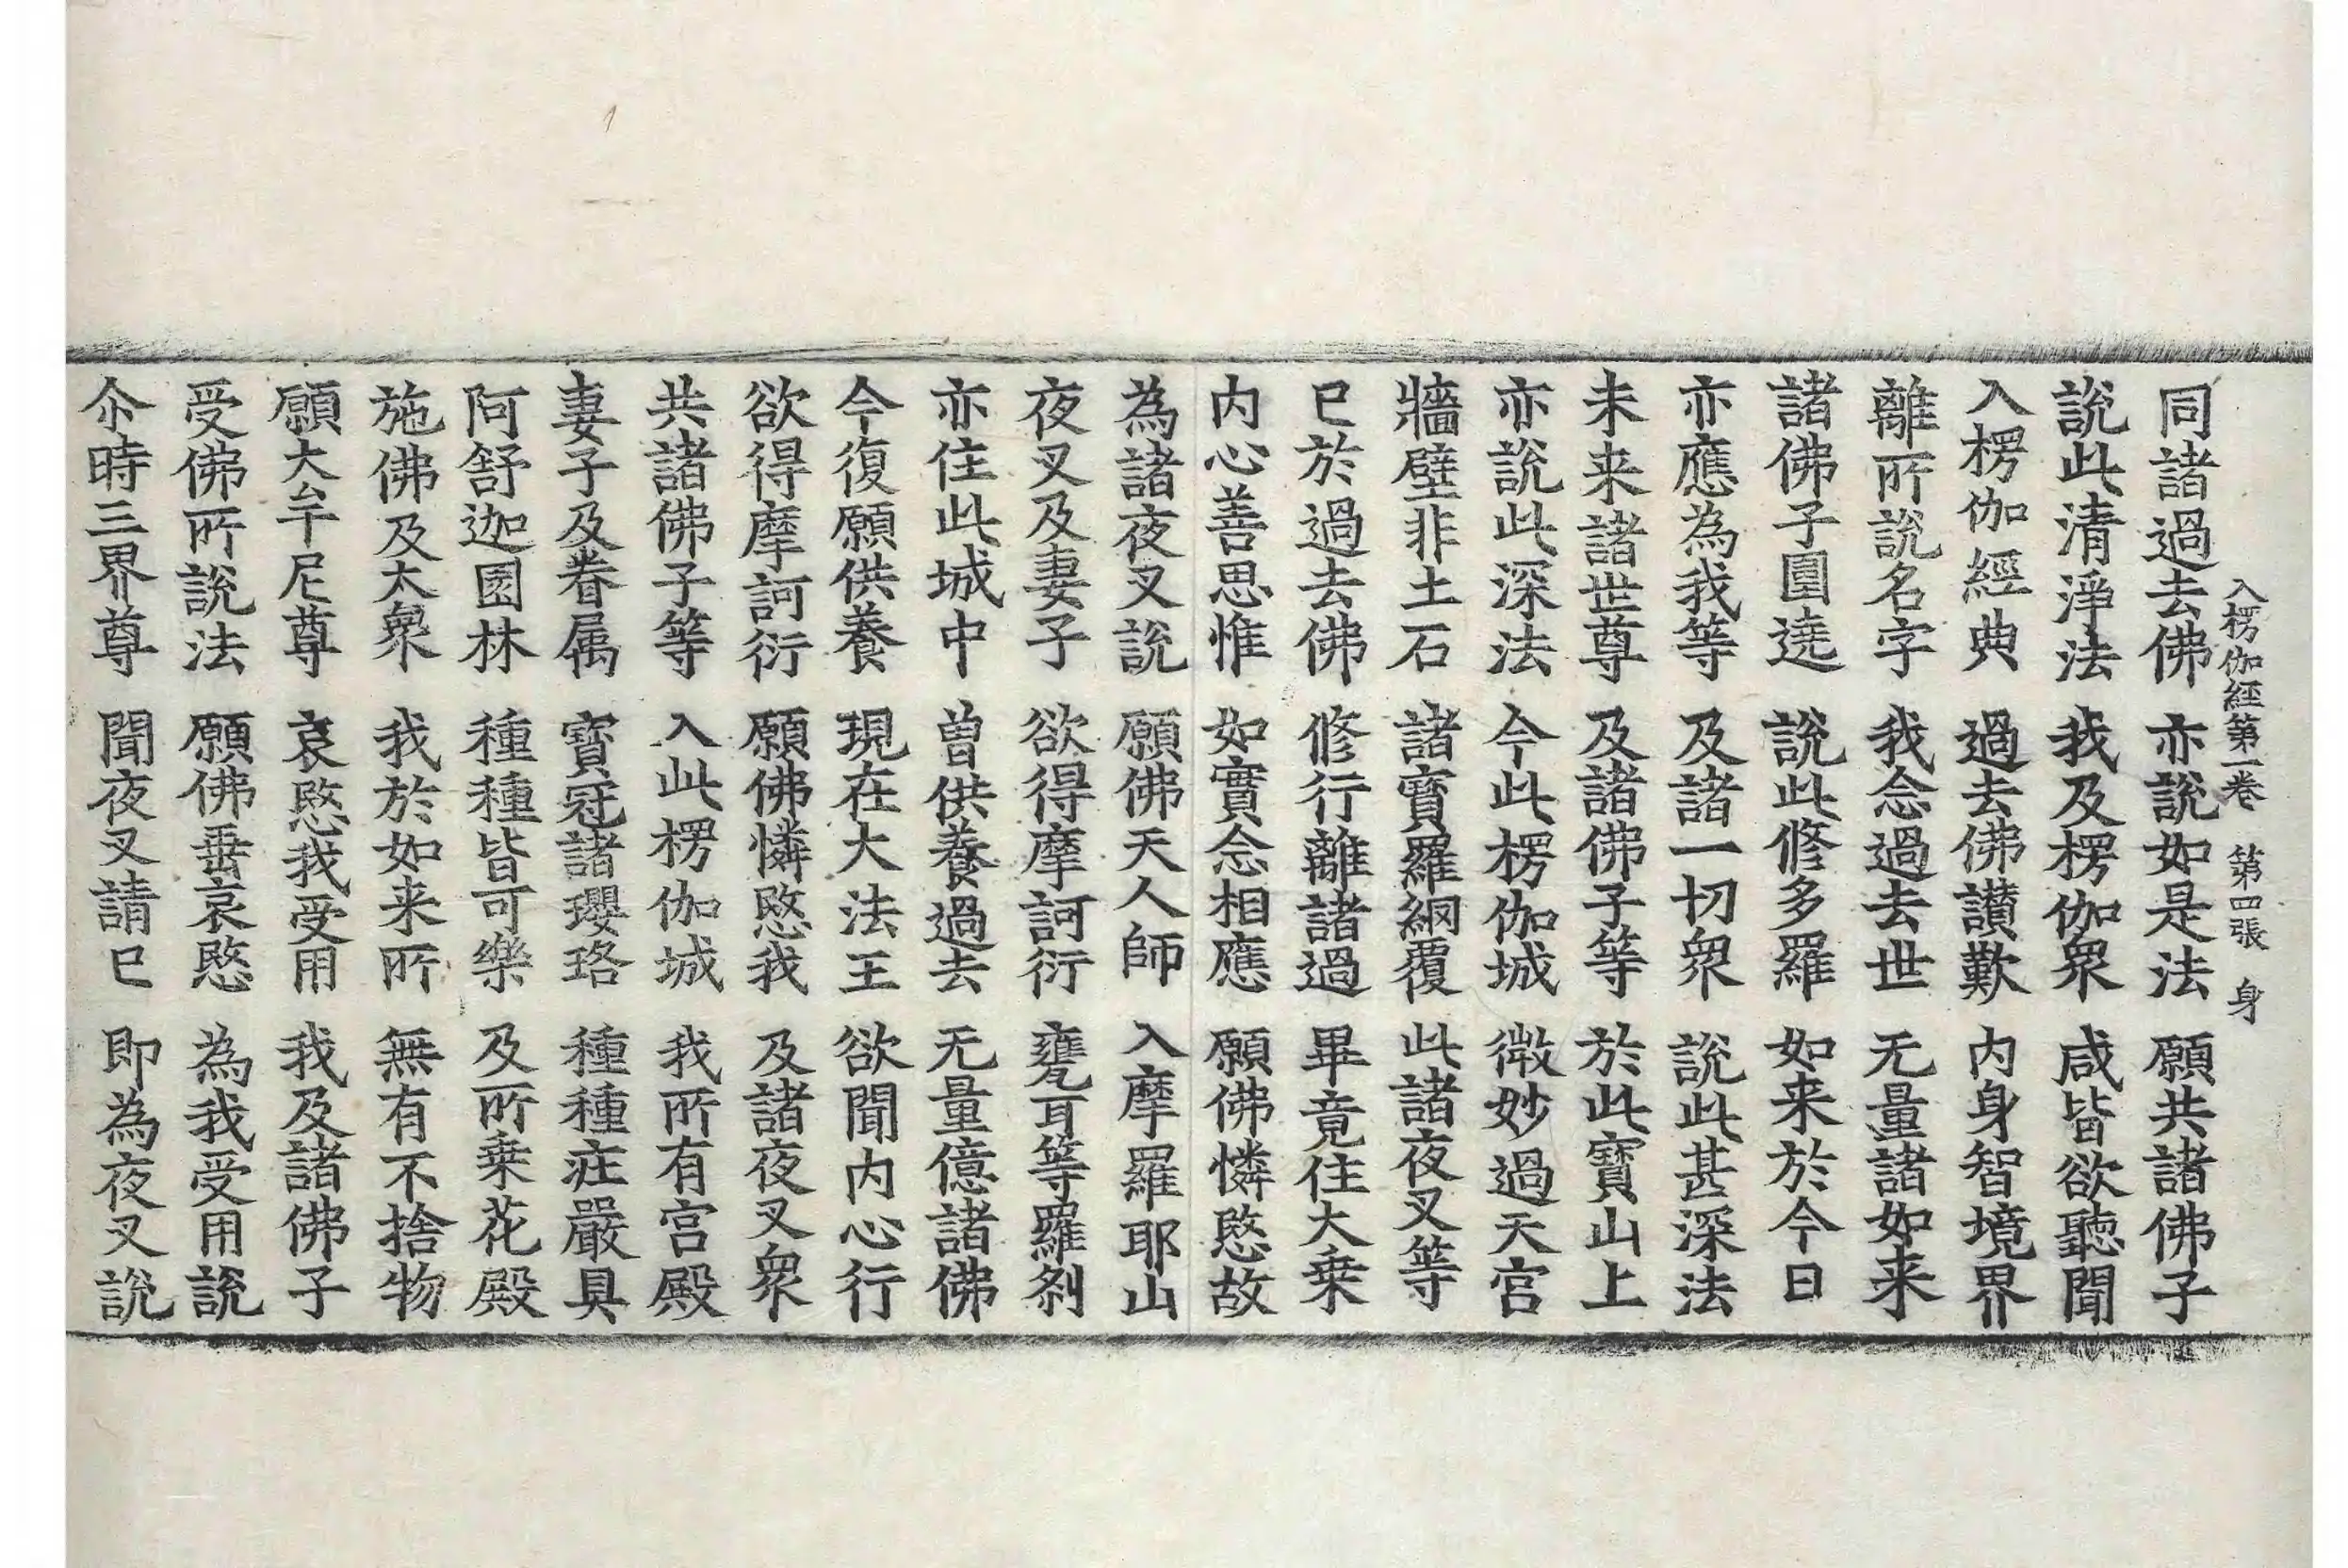 入楞伽經第一卷 第四張 身
同諸過去佛 亦說如是法 願共諸佛子
說此清淨法 我及楞伽衆 咸皆欲聽聞
入楞伽經典 過去佛讃歎 內身智境界
離所說名字 我念過去世 无量諸如来
諸佛子圍遶 說此修多羅 如来於今日
亦應為我等 及諸一切衆 說此甚深法
未来諸世尊 及諸佛子等 於此寶山上
亦說此深法 今此楞伽城 微妙過天宮
牆壁非土石 諸寶羅網覆 此諸夜叉等
已於過去佛 修行離諸過 畢竟住大乗
内心善思惟 如實念相應 願佛憐愍故
為諸夜叉說 願佛天人師 入摩羅耶山
夜叉及妻子 欲得摩訶衍 甕耳等羅刹
亦住此城中 曽供養過去 无量億諸佛
今復願供養 現在大法王 欲聞内心行
欲得摩訶衍 願佛憐愍我 及諸夜叉衆
共諸佛子等 入此楞伽城 我所有宮殿
妻子及眷属 寶冠諸瓔珞 種種莊嚴具
阿舒迦園林 種種皆可樂 及所乗花殿
施佛及大衆 我於如来所 無有不捨物
願大牟尼尊 哀愍我受用 我及諸佛子
受佛所說法 願佛垂哀愍 為我受用說
尒時三界尊 聞夜叉請已 即為夜叉說